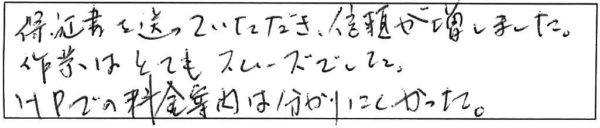 保証書を送っていただき、信頼が増しました。
作業はとてもスムーズでした。
HPでの料金案内は分かりにくかった。